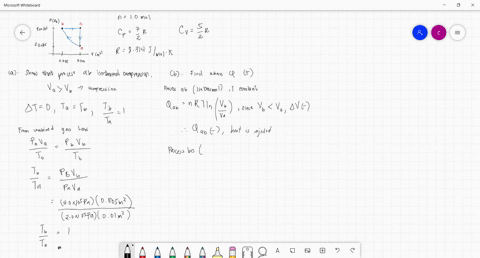 Microsoft Whiteboard
P(Pa)
n = 1.0 mol
Cp = 7/2 R
Cv = 5/2 R
R = 8.314 J/mol·K
(a). Show that process ab isothermal compression.
Va > Vb → compression
ΔT = 0, Ta = Tb, Tb/Ta = 1
From combined gas law
PaVa/Ta = PbVb/Tb
Tb/Ta = PbVb/PaVa
= (4.0x10⁵Pa)(0.005m³)/(2.0x10⁵Pa)(0.01m³)
Tb/Ta = 1
(b). Find where Q (+)
Process ab (isothermal), T constant
Qab = nRT ln(Vb/Va), since Vb < Va, ΔV(-)
∴ Qab (-), heat is ejected
Process bc (